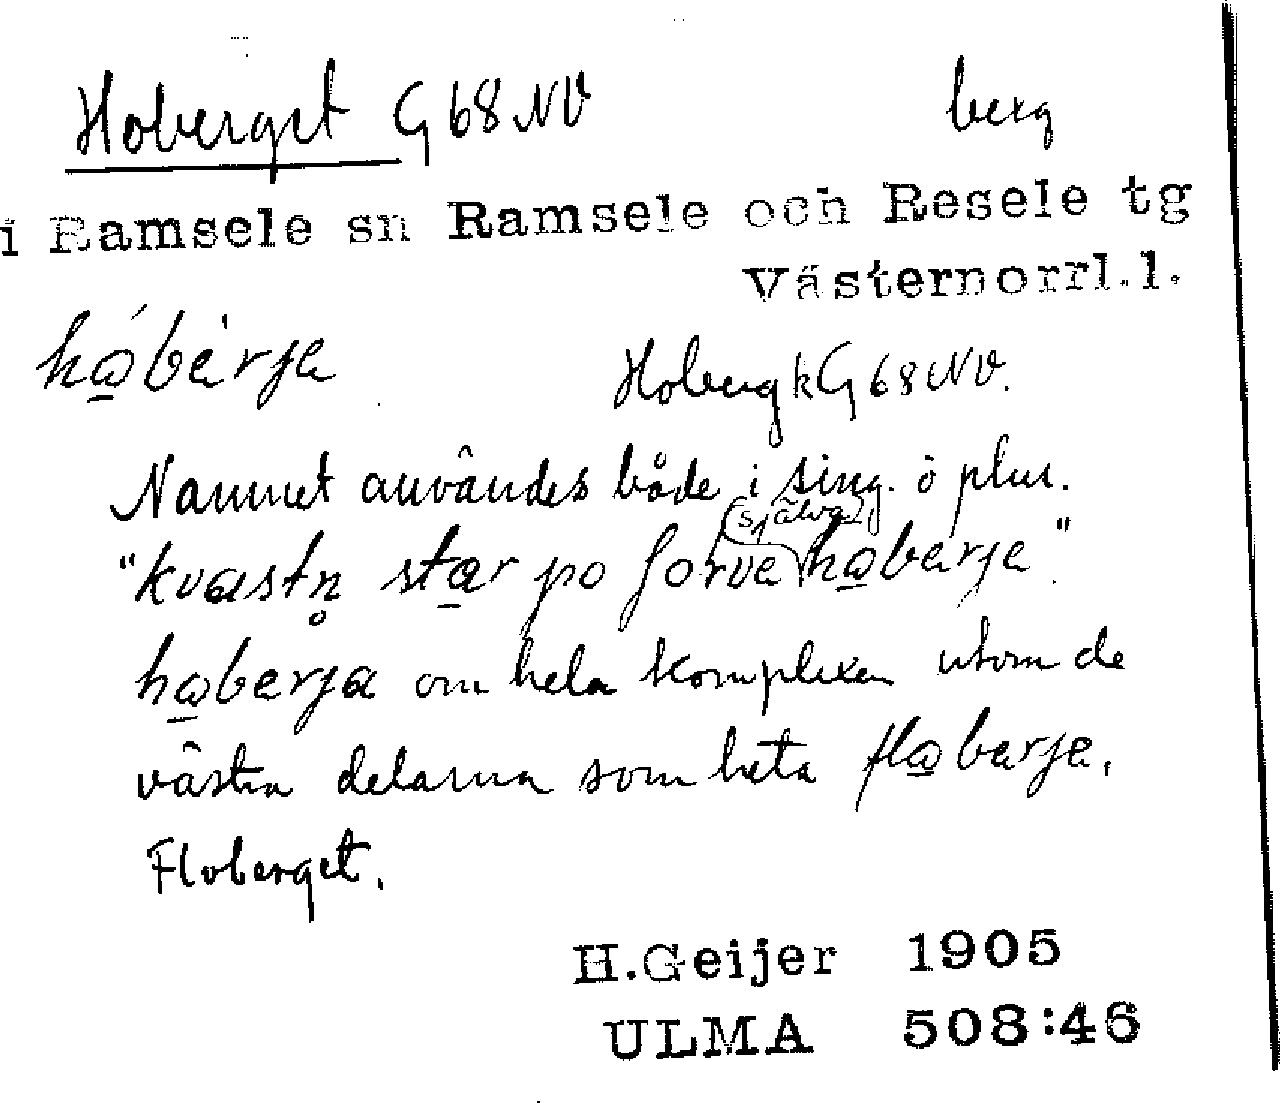 Hoberget G68NV berg
i Ramsele sn Ramsele och Resele tg
Västernorrl.l.
Hoberg k G68NV.
Namnet användes både i sing. o plur.
(själva)
"kvastn̥ star po forve håberje".
håberja om hela komplexen utom de
västra delarna som heta flåberje.
Floberget.
H.Geijer 1905
ULMA 508:46